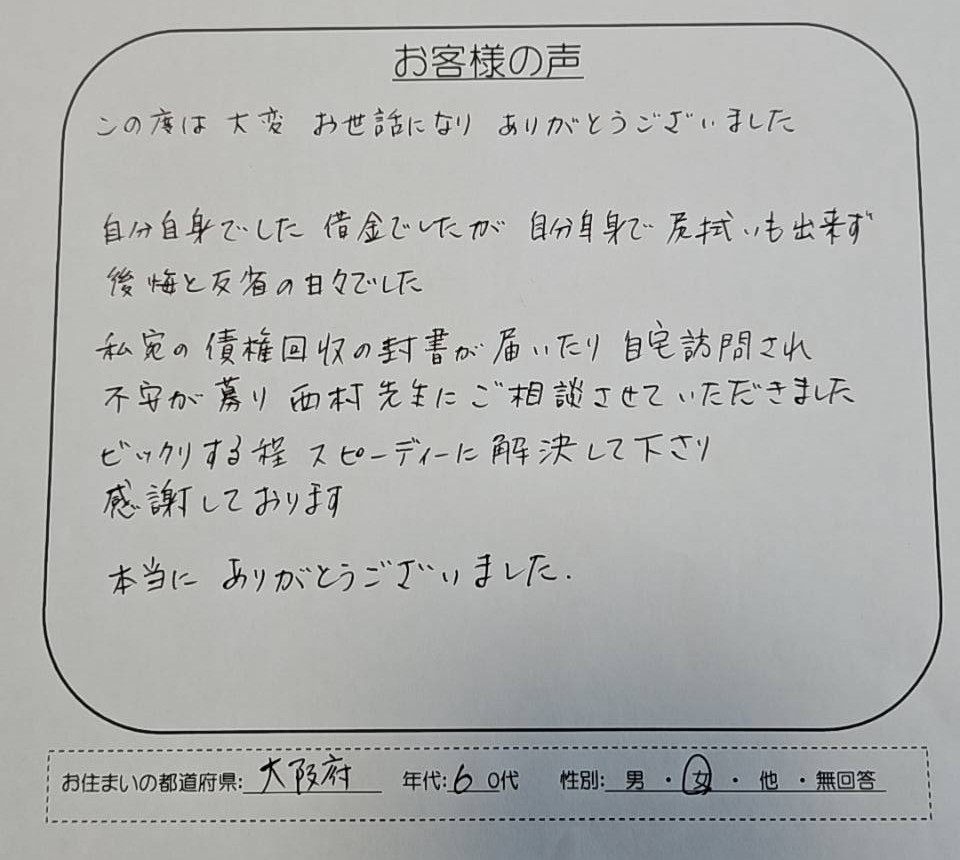 お客様の声
この度は 大変 お世話になり ありがとうございました
自分自身でした 借金でしたが 自分自身で 尻拭いも出来ず
後悔と反省の日々でした
私宛の 債権回収の封書が 届いたり 自宅訪問され
不安が募り 西村先生に ご相談させていただきました
ビックリする程 スピーディーに 解決して下さり
感謝しております
本当に ありがとうございました.
お住まいの都道府県: 大阪府 年代: 6 0代 性別: 男 ・ 女 ・ 他 ・ 無回答